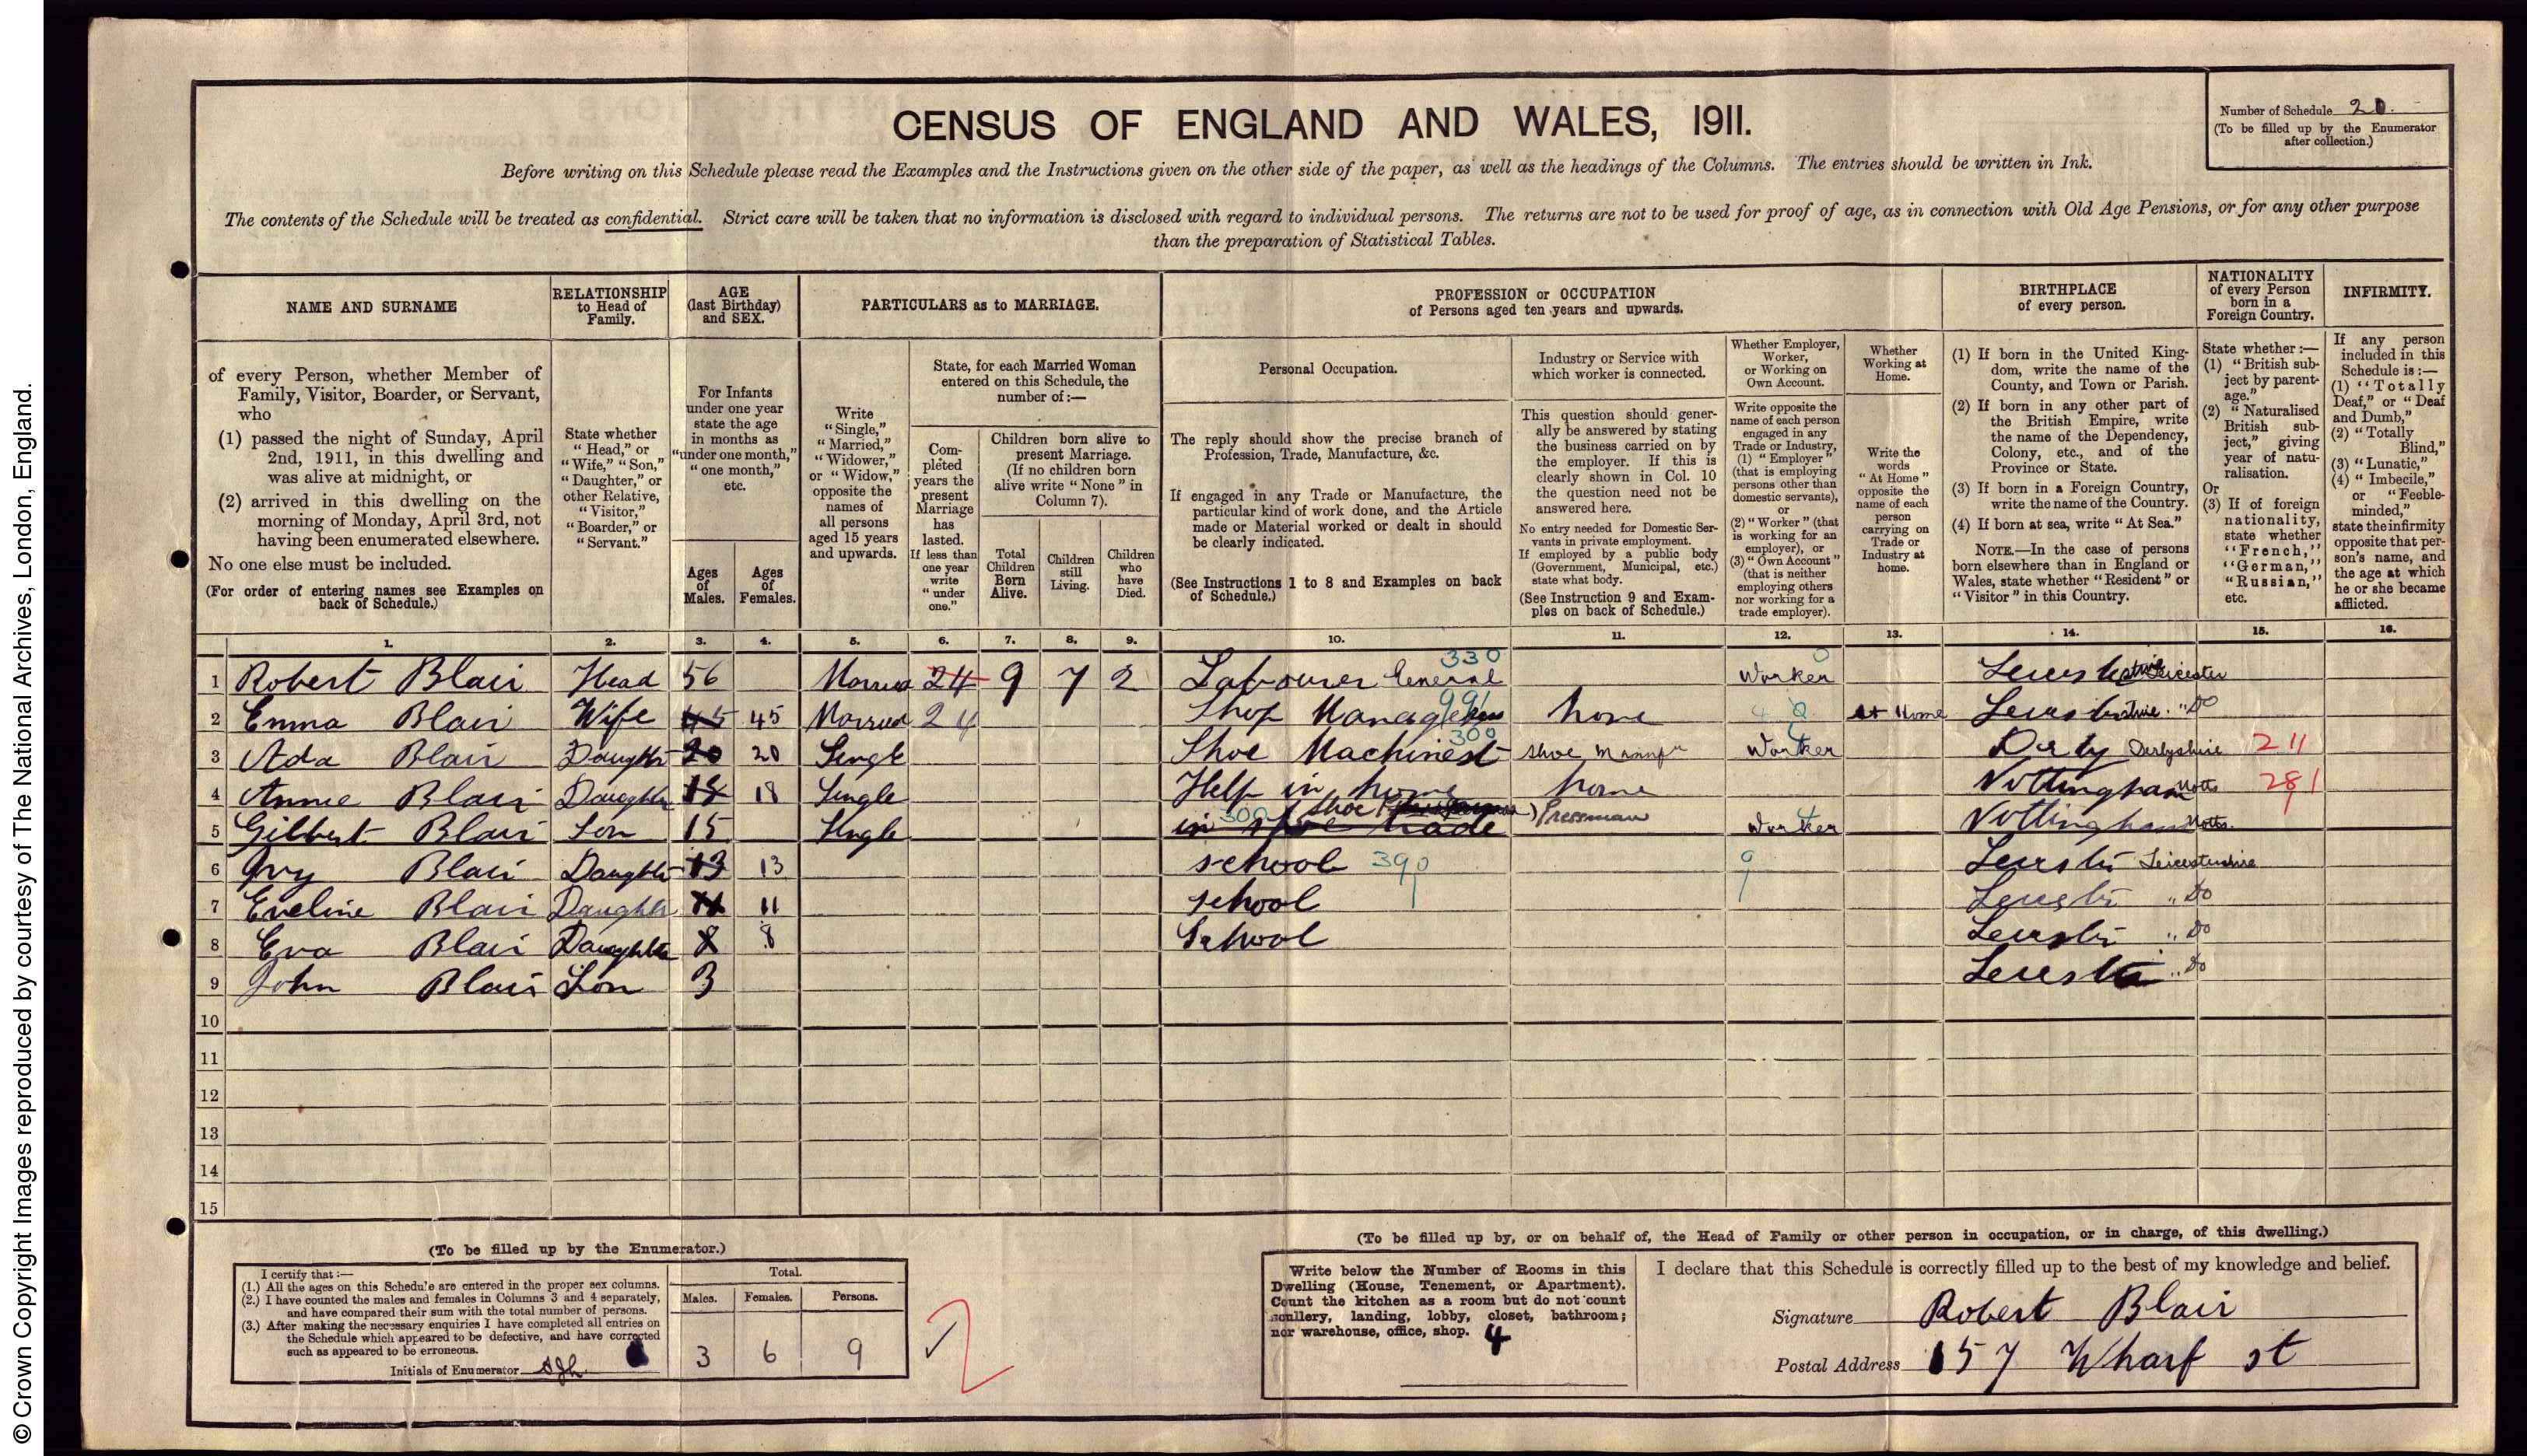 © Crown Copyright Images reproduced by courtesy of The National Archives, London, England.
CENSUS OF ENGLAND AND WALES, 1911.
Number of Schedule 20.
(To be filled up by the Enumerator
after collection.)
Before writing on this Schedule please read the Examples and the Instructions given on the other side of the paper, as well as the headings of the Columns. The entries should be written in Ink.
The contents of the Schedule will be treated as confidential. Strict care will be taken that no information is disclosed with regard to individual persons. The returns are not to be used for proof of age, as in connection with Old Age Pensions, or for any other purpose
than the preparation of Statistical Tables.
NAME AND SURNAME
of every Person, whether Member of
Family, Visitor, Boarder, or Servant,
who
(1) passed the night of Sunday, April
2nd, 1911, in this dwelling and
was alive at midnight, or
(2) arrived in this dwelling on the
morning of Monday, April 3rd, not
having been enumerated elsewhere.
No one else must be included.
(For order of entering names see Examples on
back of Schedule.)
1.
RELATIONSHIP
to Head of
Family.
State whether
"Head," or
"Wife," "Son,"
"Daughter," or
other Relative,
"Visitor,"
"Boarder," or
"Servant."
2.
AGE
(last Birthday)
and SEX.
For Infants
under one year
state the age
in months as
"under one month,"
"one month,"
etc.
Ages
of
Males.
3.
Ages
of
Females.
4.
PARTICULARS as to MARRIAGE.
Write
"Single,"
"Married,"
"Widower,"
or "Widow,"
opposite the
names of
all persons
aged 15 years
and upwards.
5.
State, for each Married Woman
entered on this Schedule, the
number of:—
Com-
pleted
years the
present
Marriage
has
lasted.
If less than
one year
write
"under
one."
6.
Children born alive to
present Marriage.
(If no children born
alive write "None" in
Column 7).
Total
Children
Born
Alive.
7.
Children
still
Living.
8.
Children
who
have
Died.
9.
PROFESSION or OCCUPATION
of Persons aged ten years and upwards.
Personal Occupation.
The reply should show the precise branch of
Profession, Trade, Manufacture, &c.
If engaged in any Trade or Manufacture, the
particular kind of work done, and the Article
made or Material worked or dealt in should
be clearly indicated.
(See Instructions 1 to 8 and Examples on back
of Schedule.)
10.
Industry or Service with
which worker is connected.
This question should gener-
ally be answered by stating
the business carried on by
the employer. If this is
clearly shown in Col. 10
the question need not be
answered here.
No entry needed for Domestic Ser-
vants in private employment.
If employed by a public body
(Government, Municipal, etc.)
state what body.
(See Instruction 9 and Exam-
ples on back of Schedule.)
11.
Whether Employer,
Worker,
or Working on
Own Account.
Write opposite the
name of each person
engaged in any
Trade or Industry,
(1) "Employer"
(that is employing
persons other than
domestic servants),
or
(2) "Worker" (that
is working for an
employer), or
(3) "Own Account"
(that is neither
employing others
nor working for a
trade employer).
12.
Whether
Working at
Home.
Write the
words
"At Home"
opposite the
name of each
person
carrying on
Trade or
Industry at
home.
13.
BIRTHPLACE
of every person.
(1) If born in the United King-
dom, write the name of the
County, and Town or Parish.
(2) If born in any other part of
the British Empire, write
the name of the Dependency,
Colony, etc., and of the
Province or State.
(3) If born in a Foreign Country,
write the name of the Country.
(4) If born at sea, write "At Sea."
NOTE.—In the case of persons
born elsewhere than in England or
Wales, state whether "Resident" or
"Visitor" in this Country.
14.
NATIONALITY
of every Person
born in a
Foreign Country.
State whether:—
(1) "British sub-
ject by parent-
age."
(2) "Naturalised
British sub-
ject," giving
year of natu-
ralisation.
Or
(3) If of foreign
nationality,
state whether
"French,"
"German,"
"Russian,"
etc.
15.
INFIRMITY.
If any person
included in this
Schedule is:—
(1) "Totally
Deaf," or "Deaf
and Dumb,"
(2) "Totally
Blind,"
(3) "Lunatic,"
(4) "Imbecile,"
or "Feeble-
minded,"
state the infirmity
opposite that per-
son's name, and
the age at which
he or she became
afflicted.
16.
1 Robert Blair Head 56 Married 24 9 7 2 Labourer General 330 Worker 0 Leicester
2 Emma Blair Wife 45 45 Married 24 Shop Manag home At Home Do
3 Ada Blair Daughter 20 20 Single Shoe Machinest 300 Shoe Worker Derby Derbyshire 211
4 Annie Blair Daughter 18 18 Single Help in home home Nottingham Notts 281
5 Gilbert Blair Son 15 Single in shoe trade 300 Shoe Pressman Worker Nottingham Notts.
6 Ivy Blair Daughter 13 13 school 390 9 Leicester Leicestershire
7 Eveline Blair Daughter 11 11 school Leicester " Do
8 Eva Blair Daughter 8 8 School Leicester " Do
9 John Blair Son 3 Leicester " Do
10
11
12
13
14
15
(To be filled up by the Enumerator.)
I certify that:—
(1.) All the ages on this Schedule are entered in the proper sex columns.
(2.) I have counted the males and females in Columns 3 and 4 separately,
and have compared their sum with the total number of persons.
(3.) After making the necessary enquiries I have completed all entries on
the Schedule which appeared to be defective, and have corrected
such as appeared to be erroneous.
Initials of Enumerator
Total.
Males. Females. Persons.
3 6 9
2
(To be filled up by, or on behalf of, the Head of Family or other person in occupation, or in charge, of this dwelling.)
Write below the Number of Rooms in this
Dwelling (House, Tenement, or Apartment).
Count the kitchen as a room but do not count
scullery, landing, lobby, closet, bathroom;
nor warehouse, office, shop. 4
I declare that this Schedule is correctly filled up to the best of my knowledge and belief.
Signature Robert Blair
Postal Address 157 Wharf st